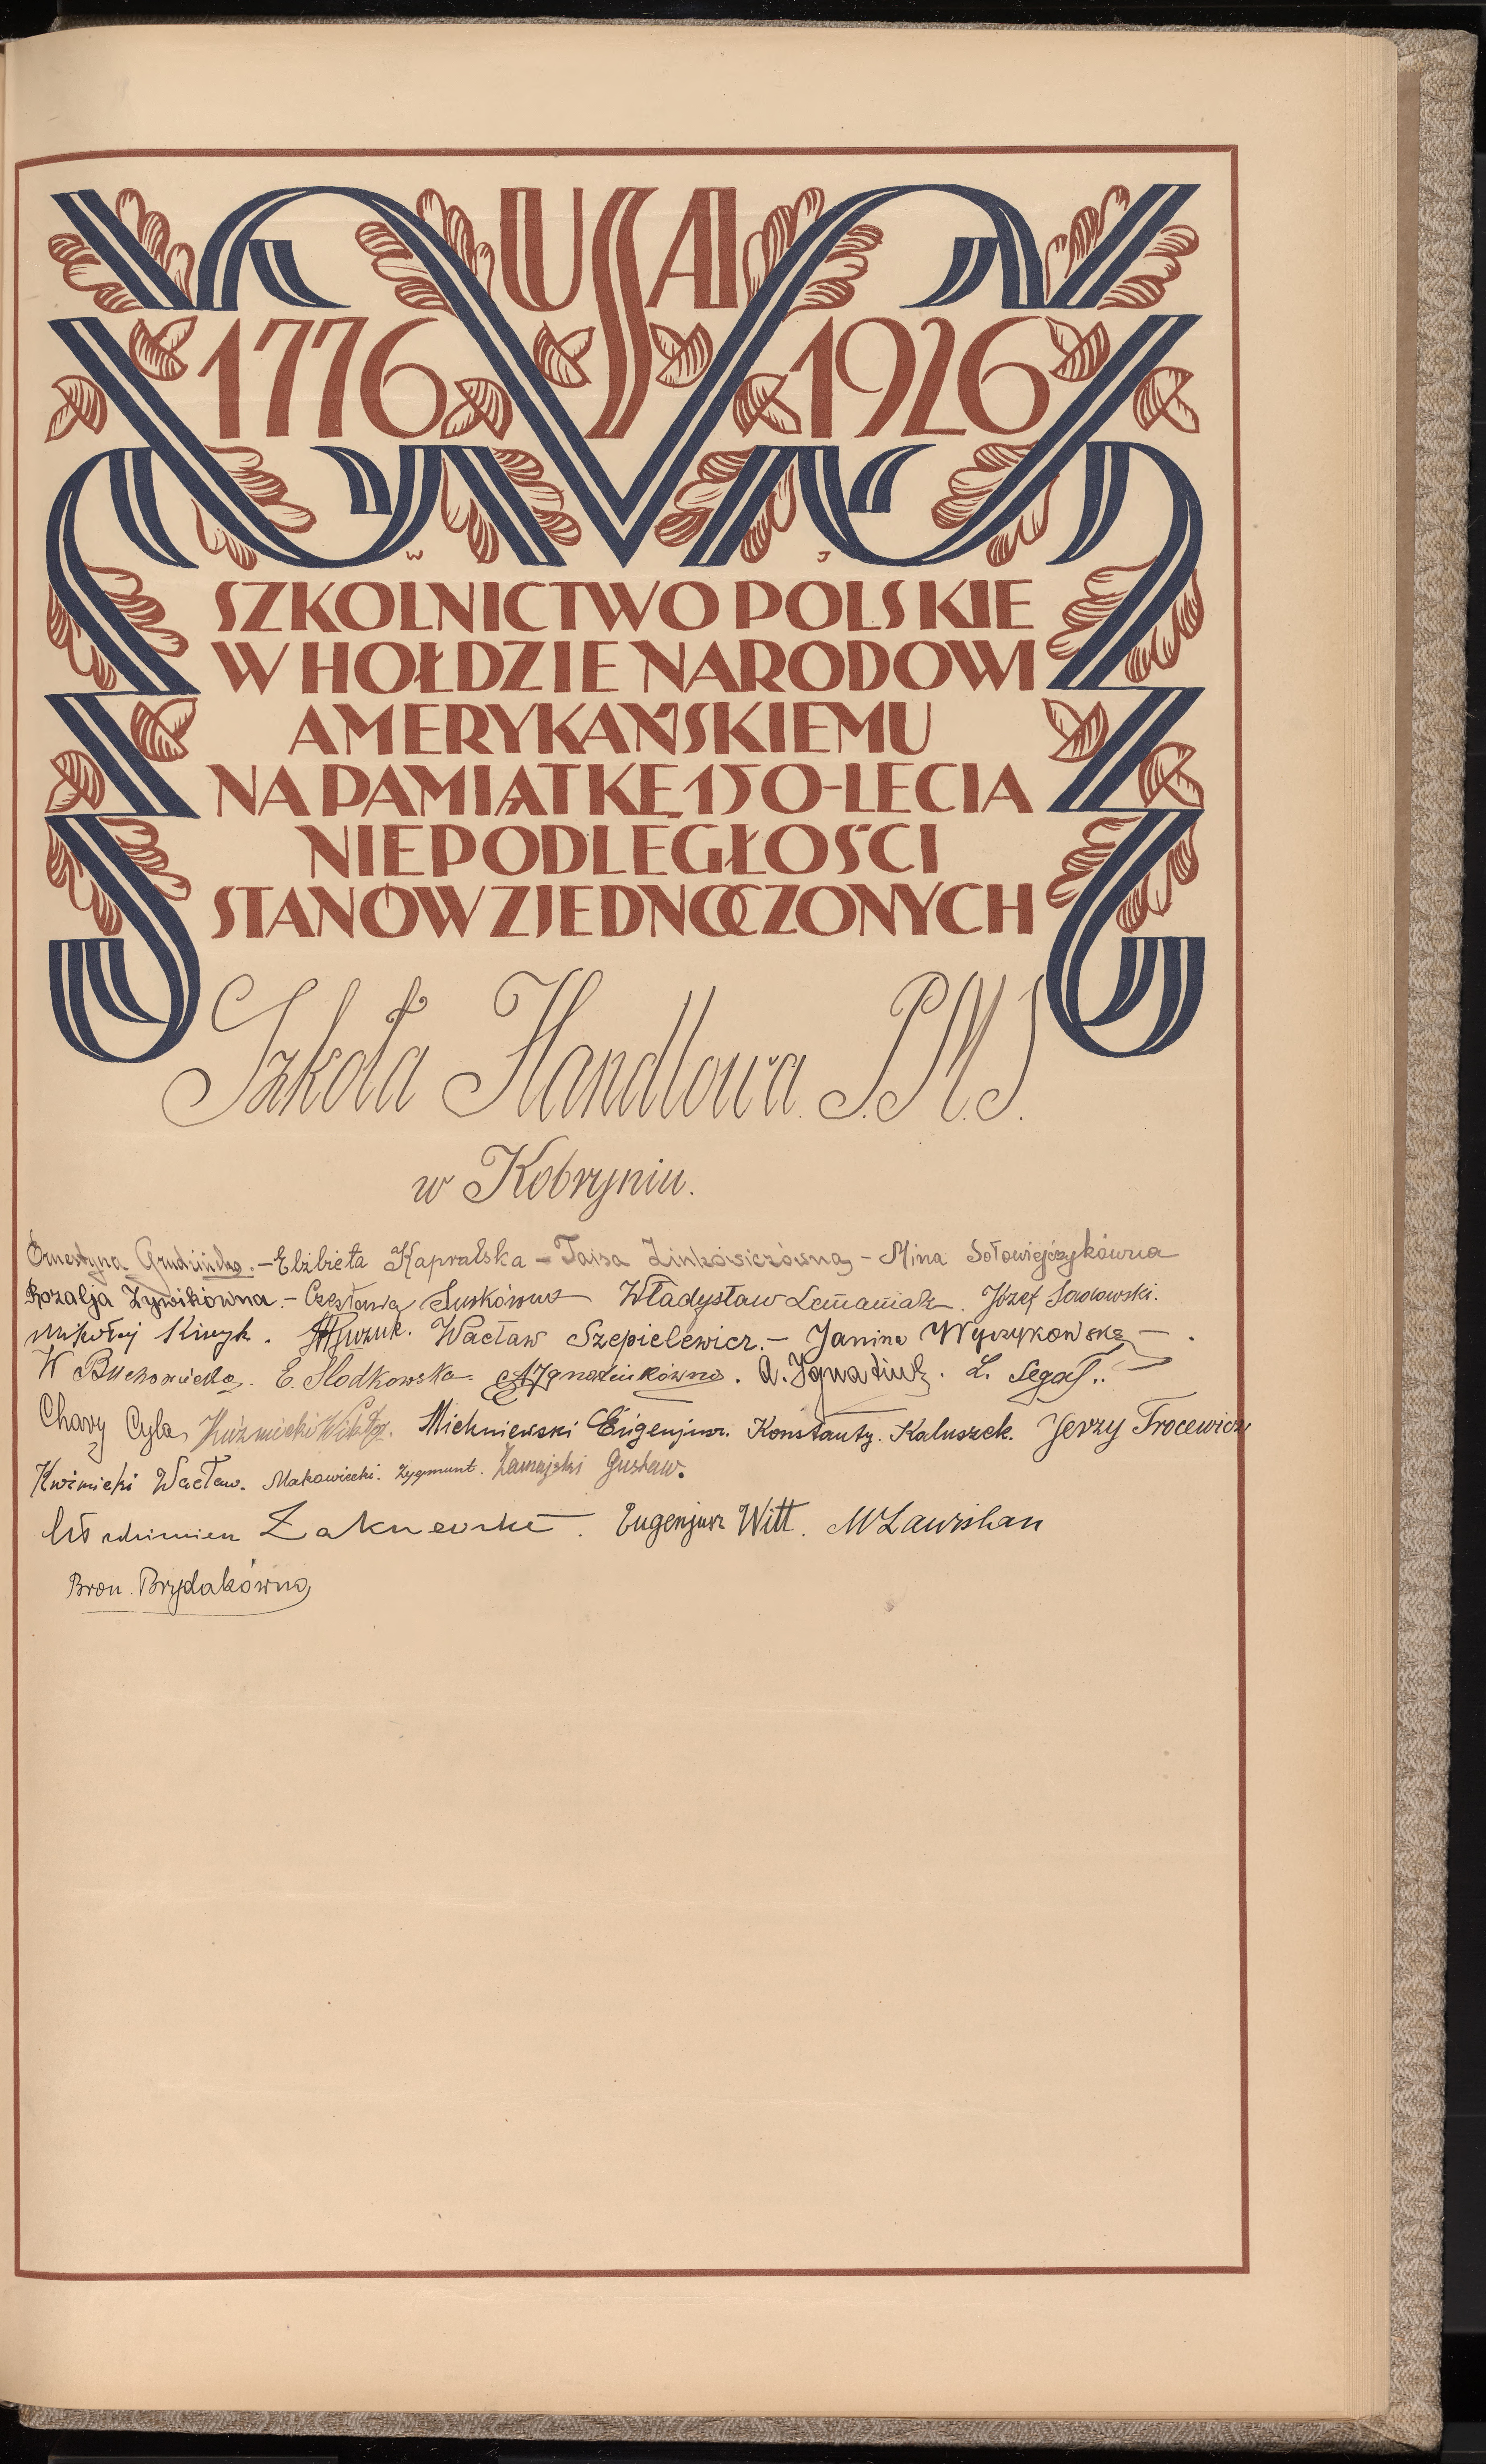 USA
1776 1926
W J
SZKOLNICTWO POLSKIE
W HOŁDZIE NARODOWI
AMERYKAŃSKIEMU
NA PAMIĄTKĘ 150-LECIA
NIEPODLEGŁOŚCI
STANÓW ZJEDNOCZONYCH
Szkoła Handlowa P.M.S.
w Kobryniu.
Ernestyna - Elżbieta Kapralska - Taisa Zinkowiczówna - Mina Sołowiejczykówna
Rozalja Żywikówna. - Czesława Suskówna Władysław Lemaniak. Józef
Mikołaj Kiryk. Wacław Szepielewicz. - Janina Wyrzykowska -.
W Buchowiecka. E. Słodkowska. A Ignatiukówna. A. Ignatiuk. L. Segal..
Chary Cyla Kuźmicki Wiktor. Michniewski Eugenjusz. Konstanty. Kaluszek. Jerzy Trocewicz
Kuźmicki Wacław. Makowiecki. Zygmunt. Zamajski Gustaw.
Eugenjusz Witt.
Bron. Brydakówna